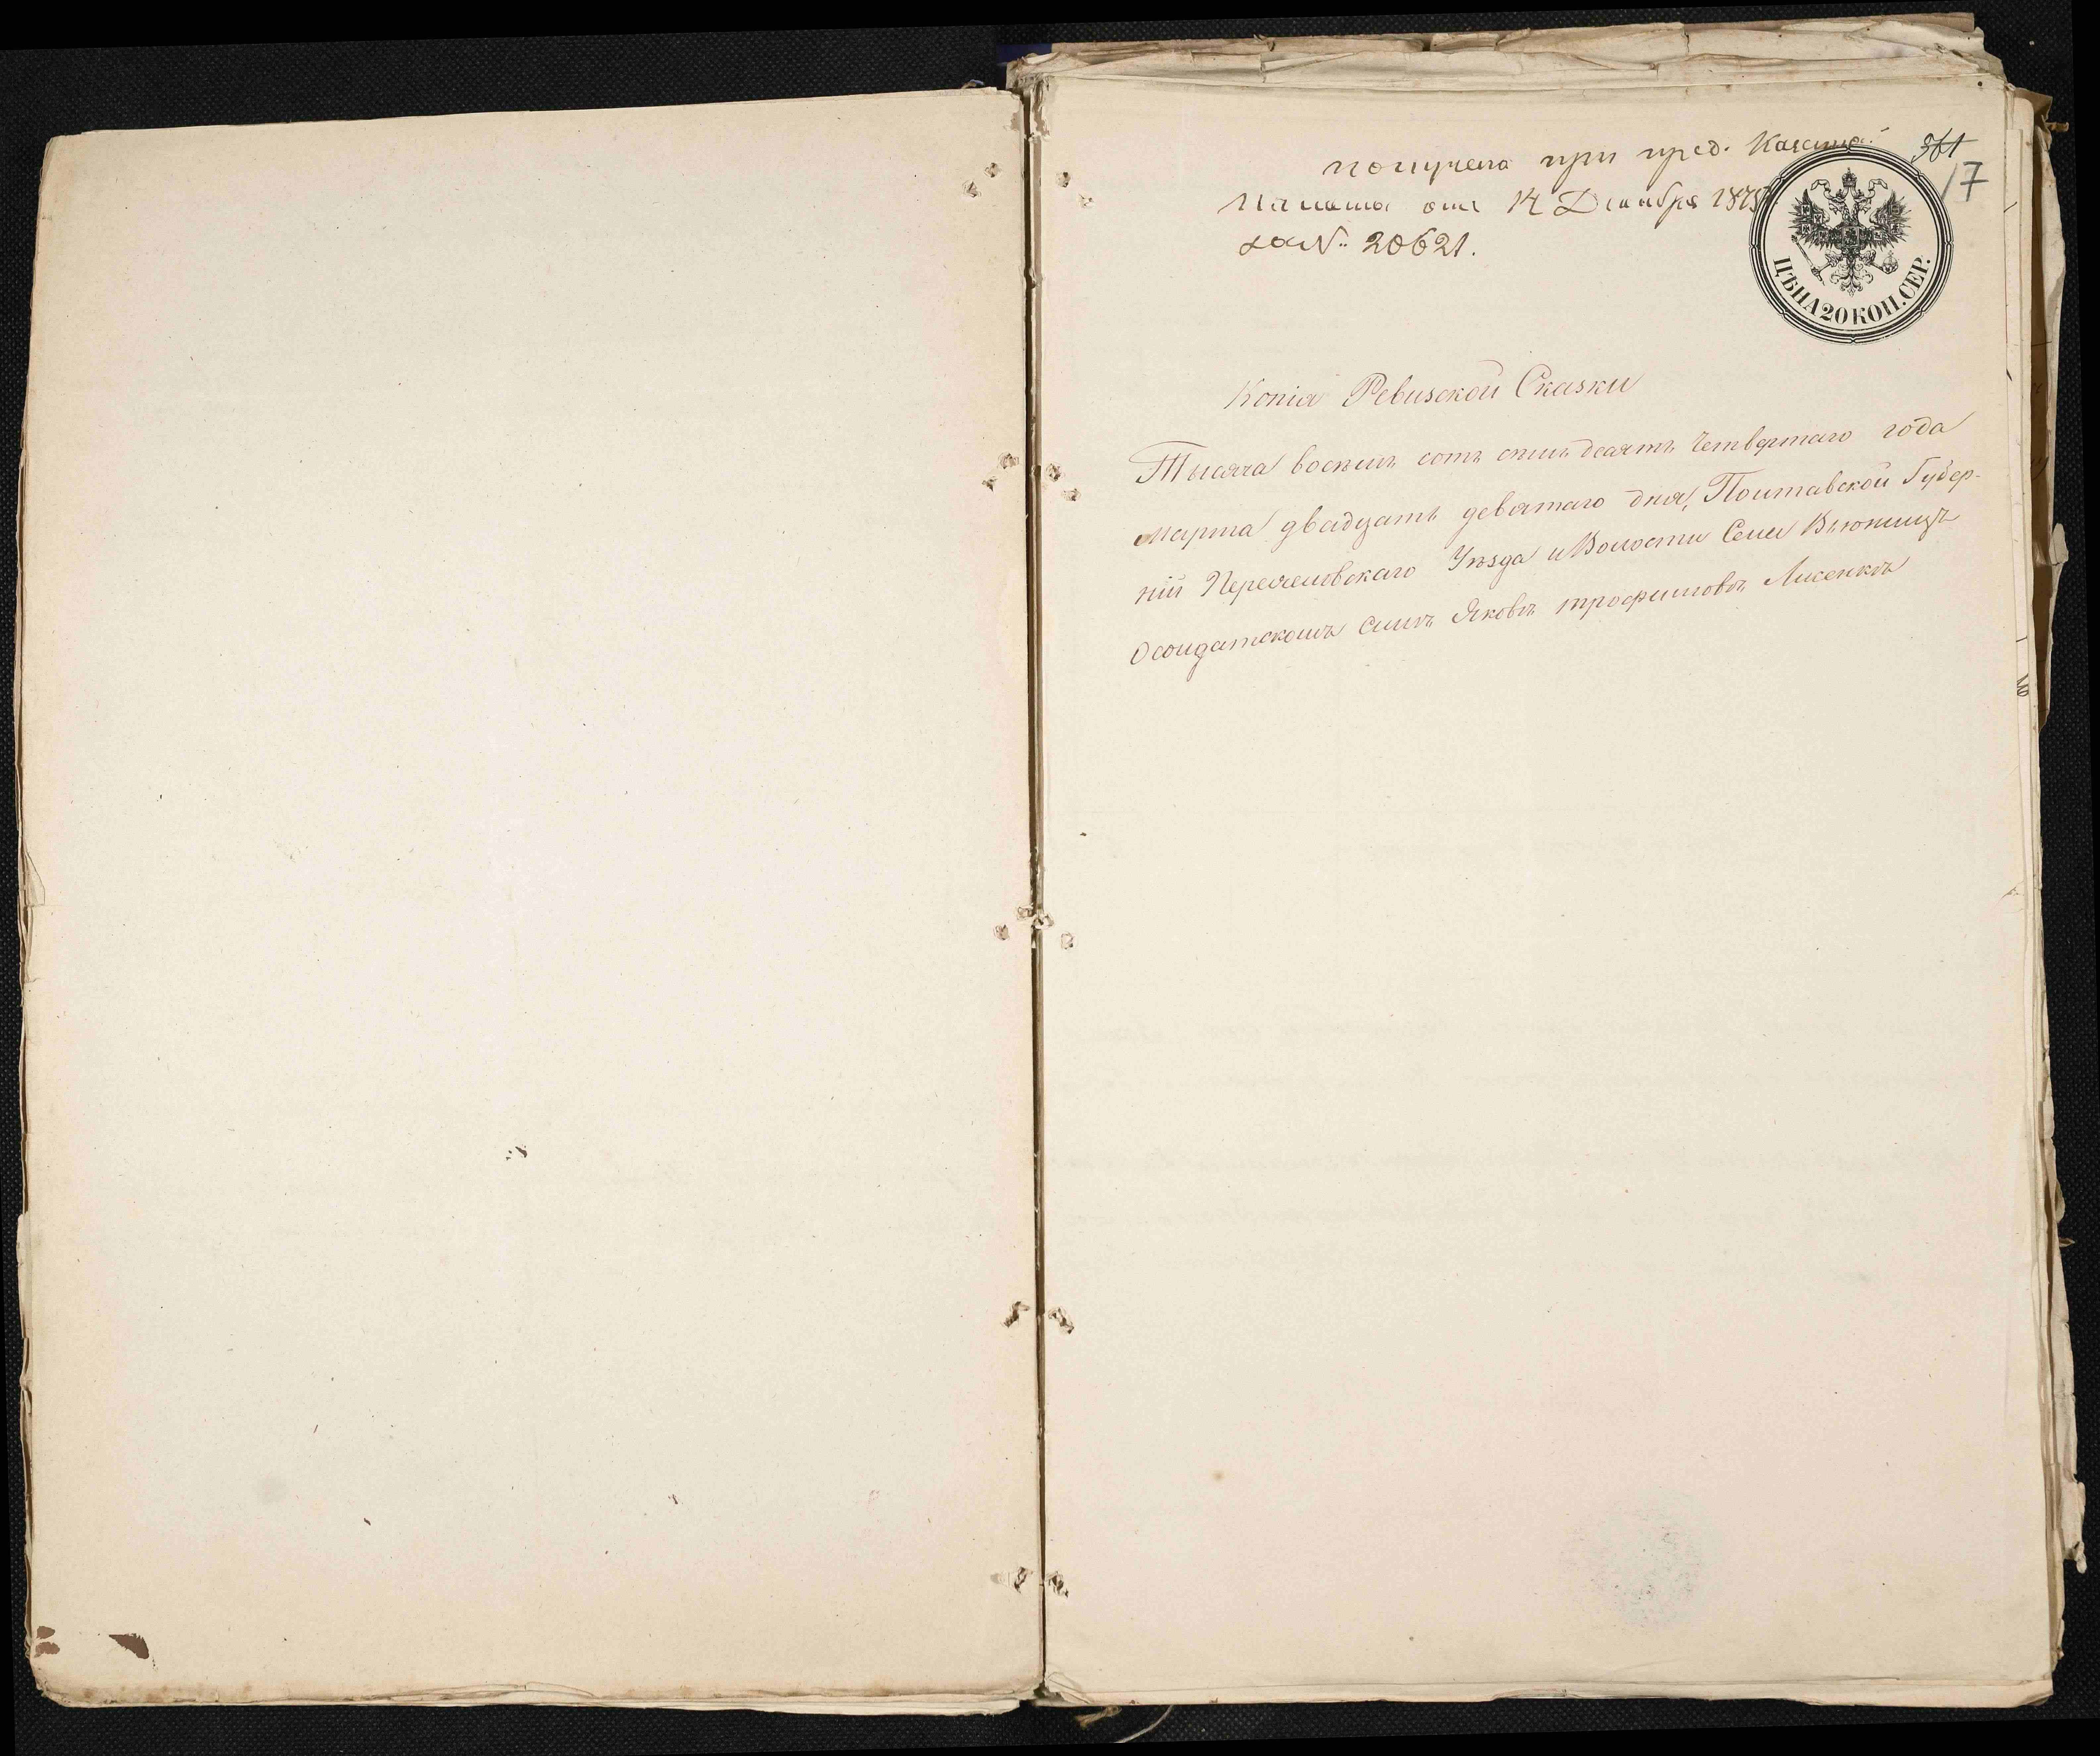 получена при пред. Казеной
Палаты отъ 14 Декабря 1875
за № 20621.
361
17
ЦѢНА 20 КОП. СЕР.
Копія Ревизской Сказки
Тысяча восемь сотъ семь десятъ Четвертаго года
марта двадцать девятаго дня, Полтавской Губер-
ніи Переяславскаго Уѣзда и Волости Села Вьюнищъ
О солдатскомъ сынѣ Яковѣ трофимовѣ Лисенкѣ